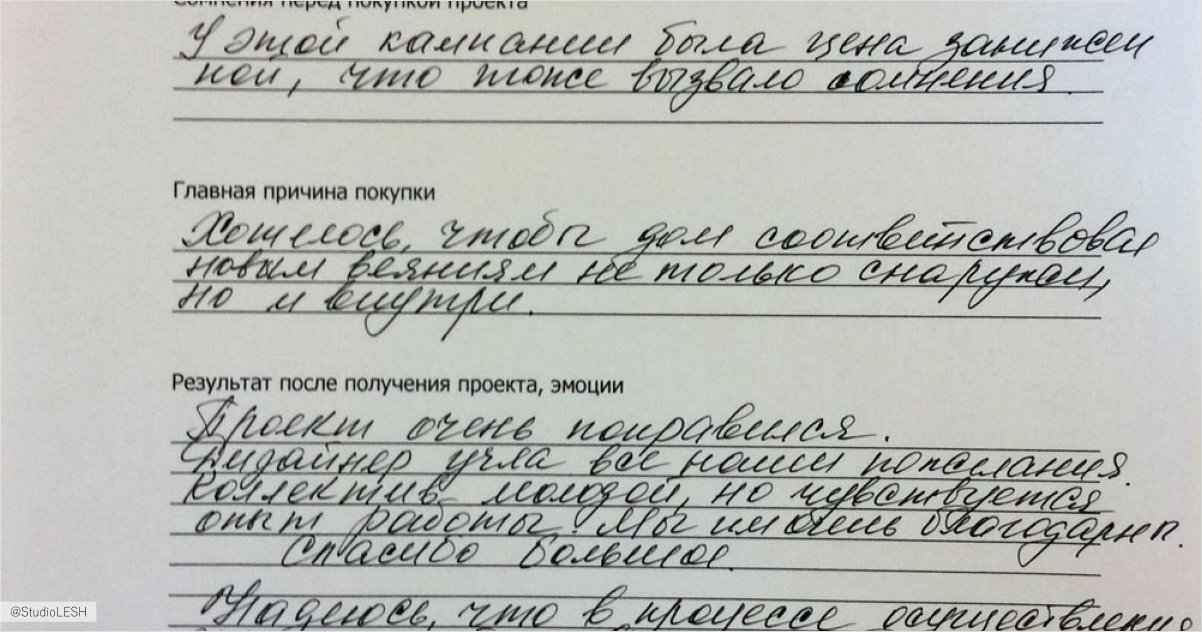 Сомнения перед покупкой проекта
У этой кампании была цена занижен
ной, что тоже вызвало сомнения.
Главная причина покупки
Хотелось, чтобы дом соответствовал
новым веяниям не только снаружи,
но и внутри.
Результат после получения проекта, эмоции
Проект очень понравился.
Дизайнер учла все наши пожелания.
Коллектив молодой, но чувствуется
опыт работы. Мы им очень благодарны.
Спасибо большое.
Надеюсь, что в процессе осуществлени
@StudioLESH